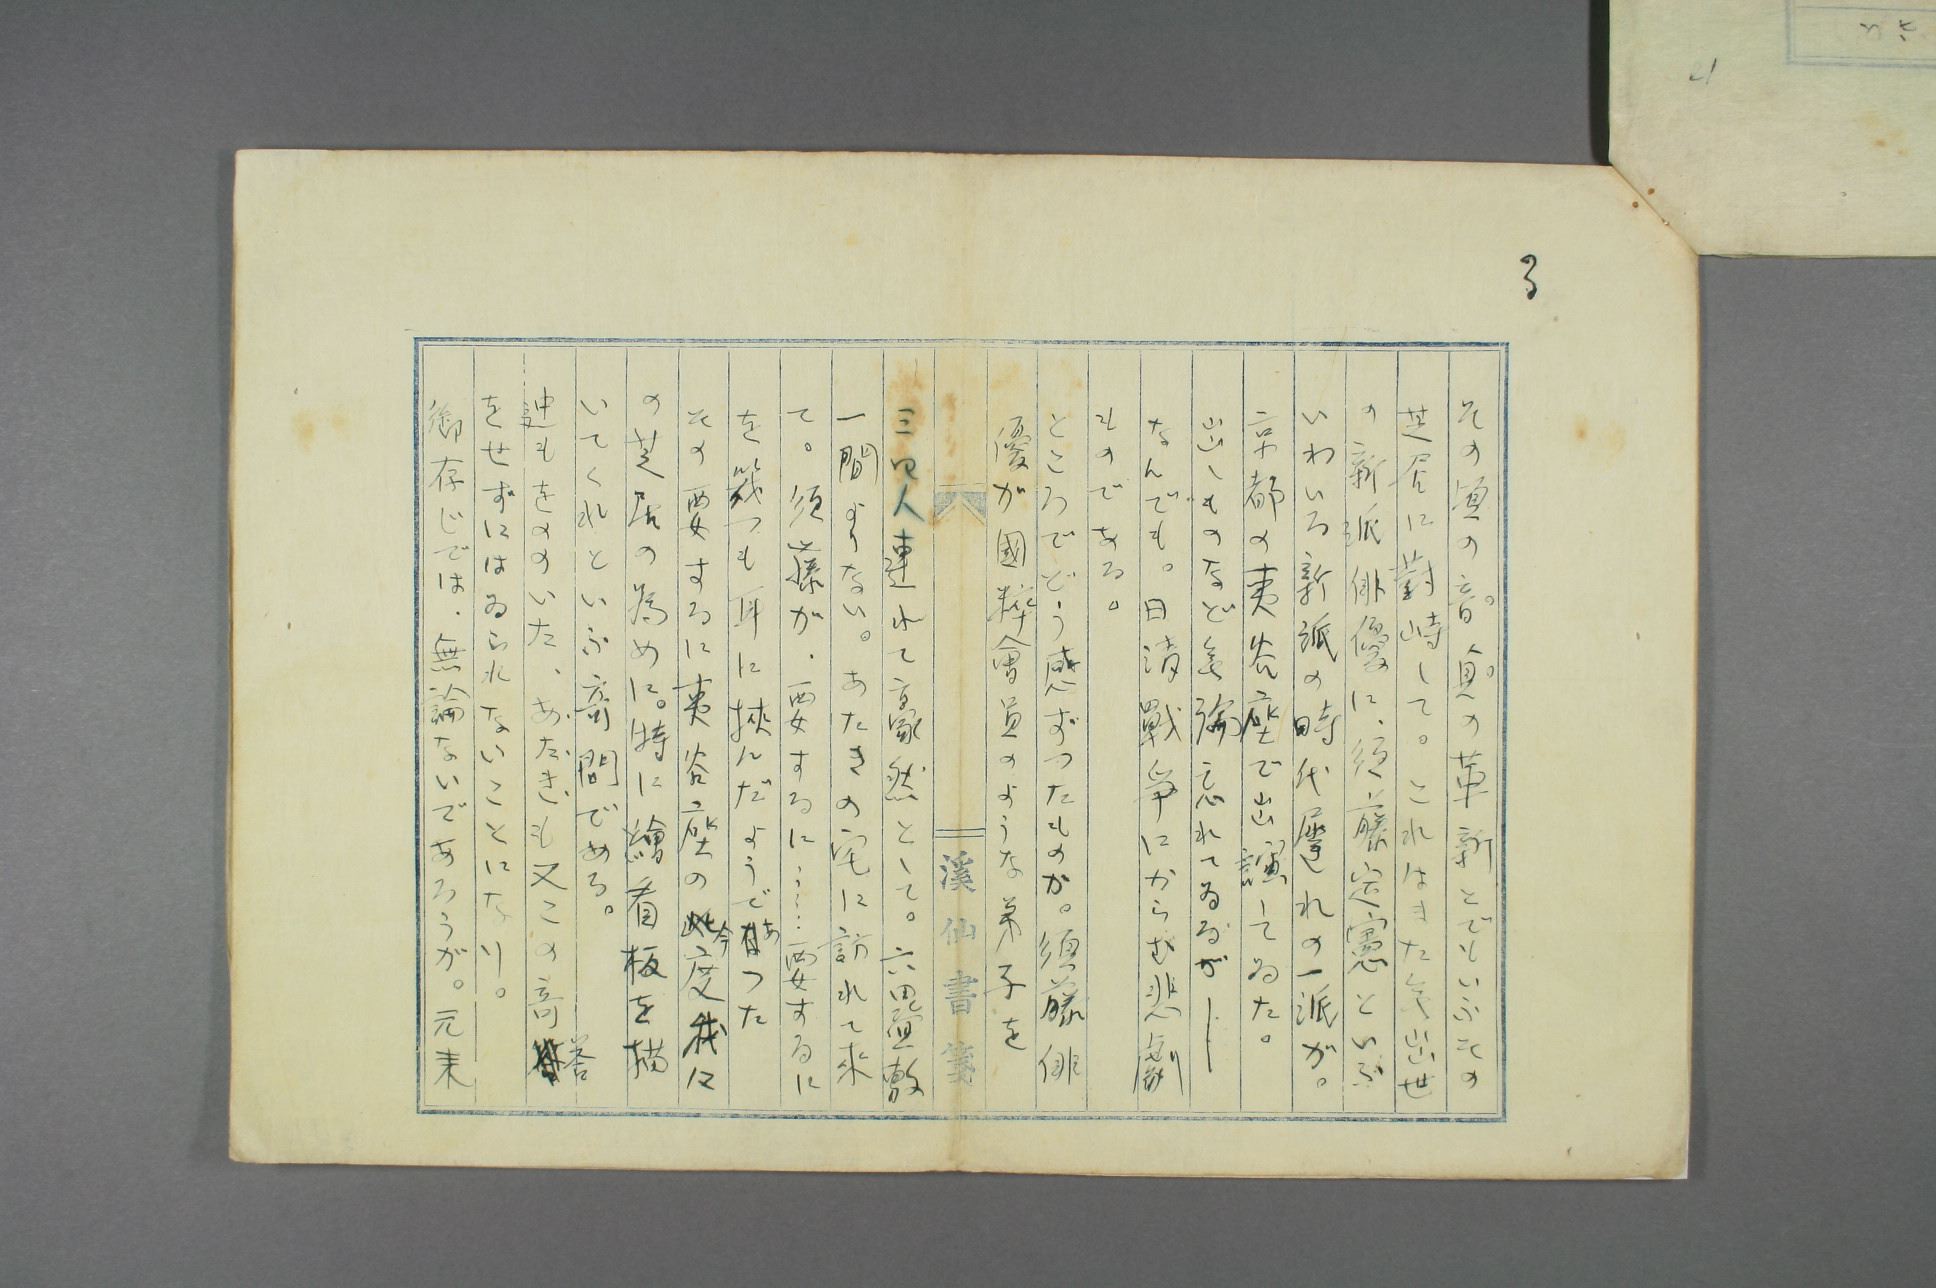 3
その頃の音。貞の革新とでもいふその
芝居に對峙して。これはまた無出世
の新派俳優に、須藤定憲といふ
いわいる新派の時代遅れの一派が。
京都の夷谷座で出演してゐた。
出しものなど無論忘れてゐるが――
なんでも。日清戰争にからむ悲劇
ものである。
ところでどう感ずつたものか。須藤俳
優が國粹會員のような弟子を
三四人連れて豪然として。六疊敷
一間よりない。あたきの宅に訪れて来
て。須藤が、要するに……要するに
を幾つも耳に挾んだようであつた
その要するに夷谷座の今度我に
の芝居の為めに。特に繪看板を描
いてくれといふ斎問である。
迚もをののいた、あだぎも又この斎答
をせずにはゐられないことになり。
御存じでは、無論ないであろうが。元来
溪仙書箋